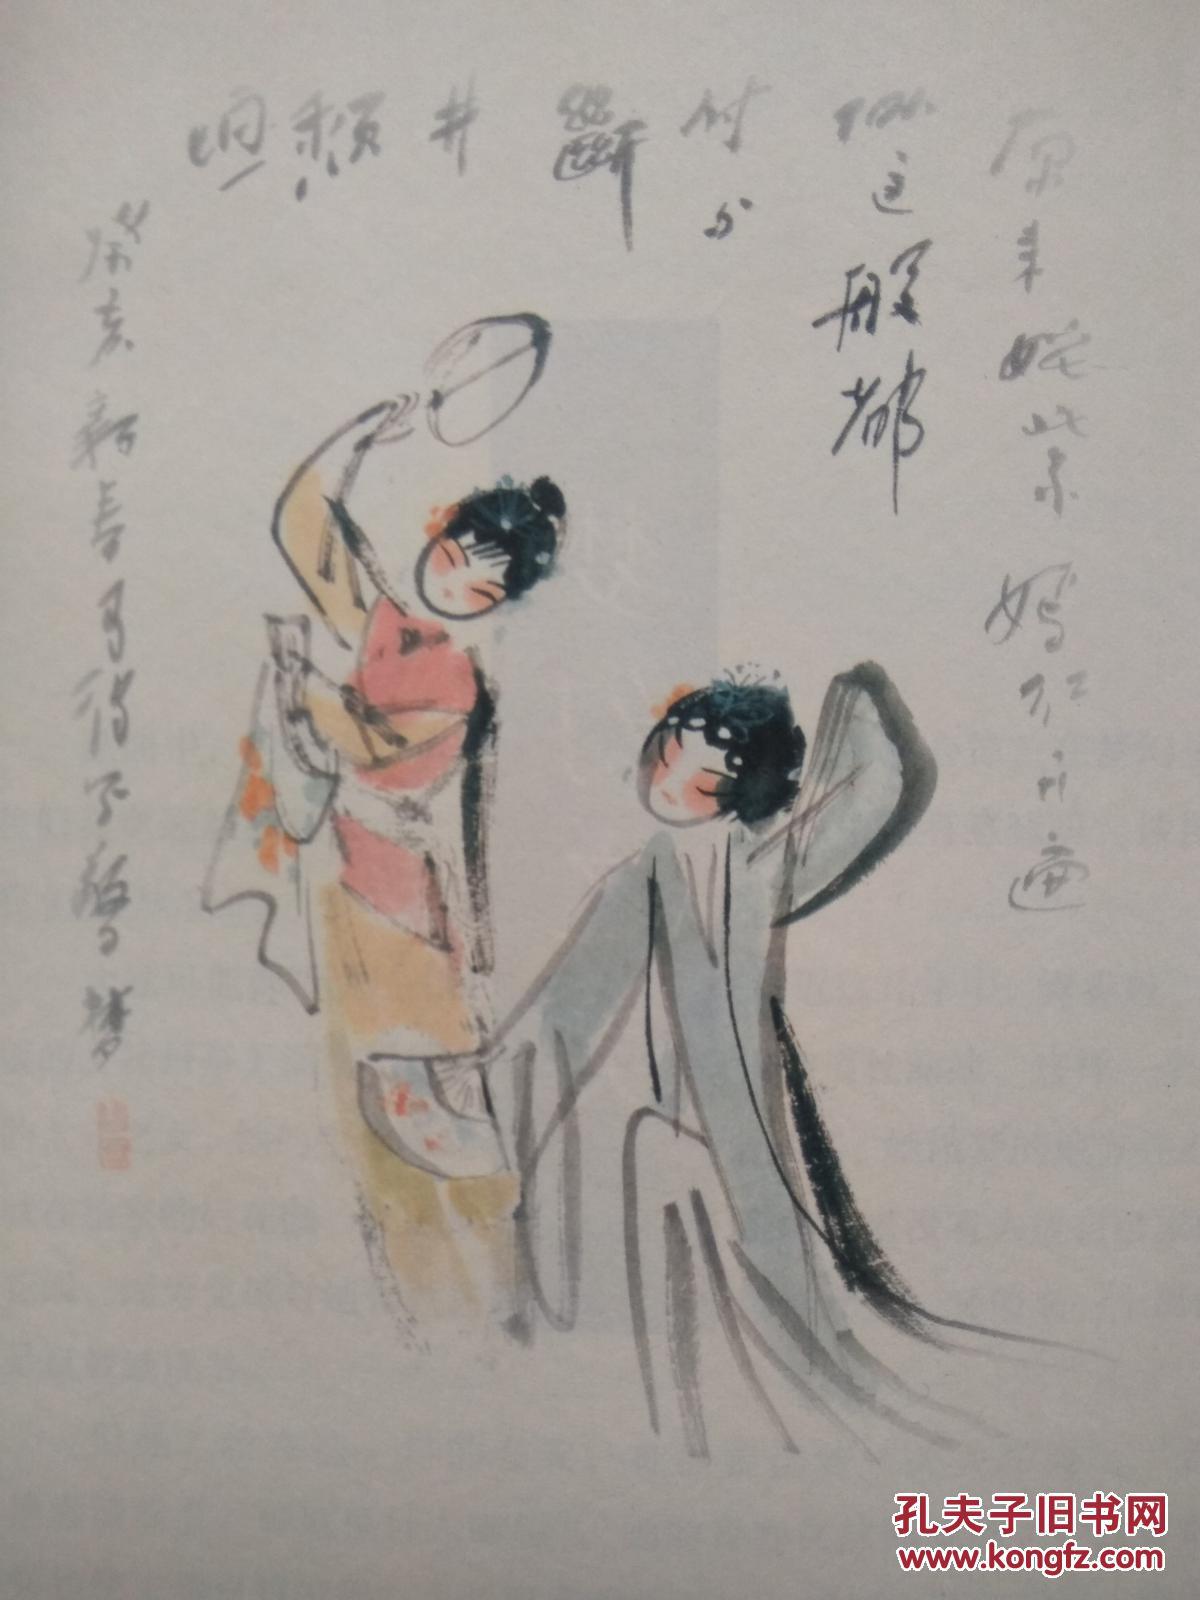 原来姹紫嫣红开遍
似这般都
付与
断
井
颓
垣
癸亥新春
孔夫子旧书网
www.kongfz.com